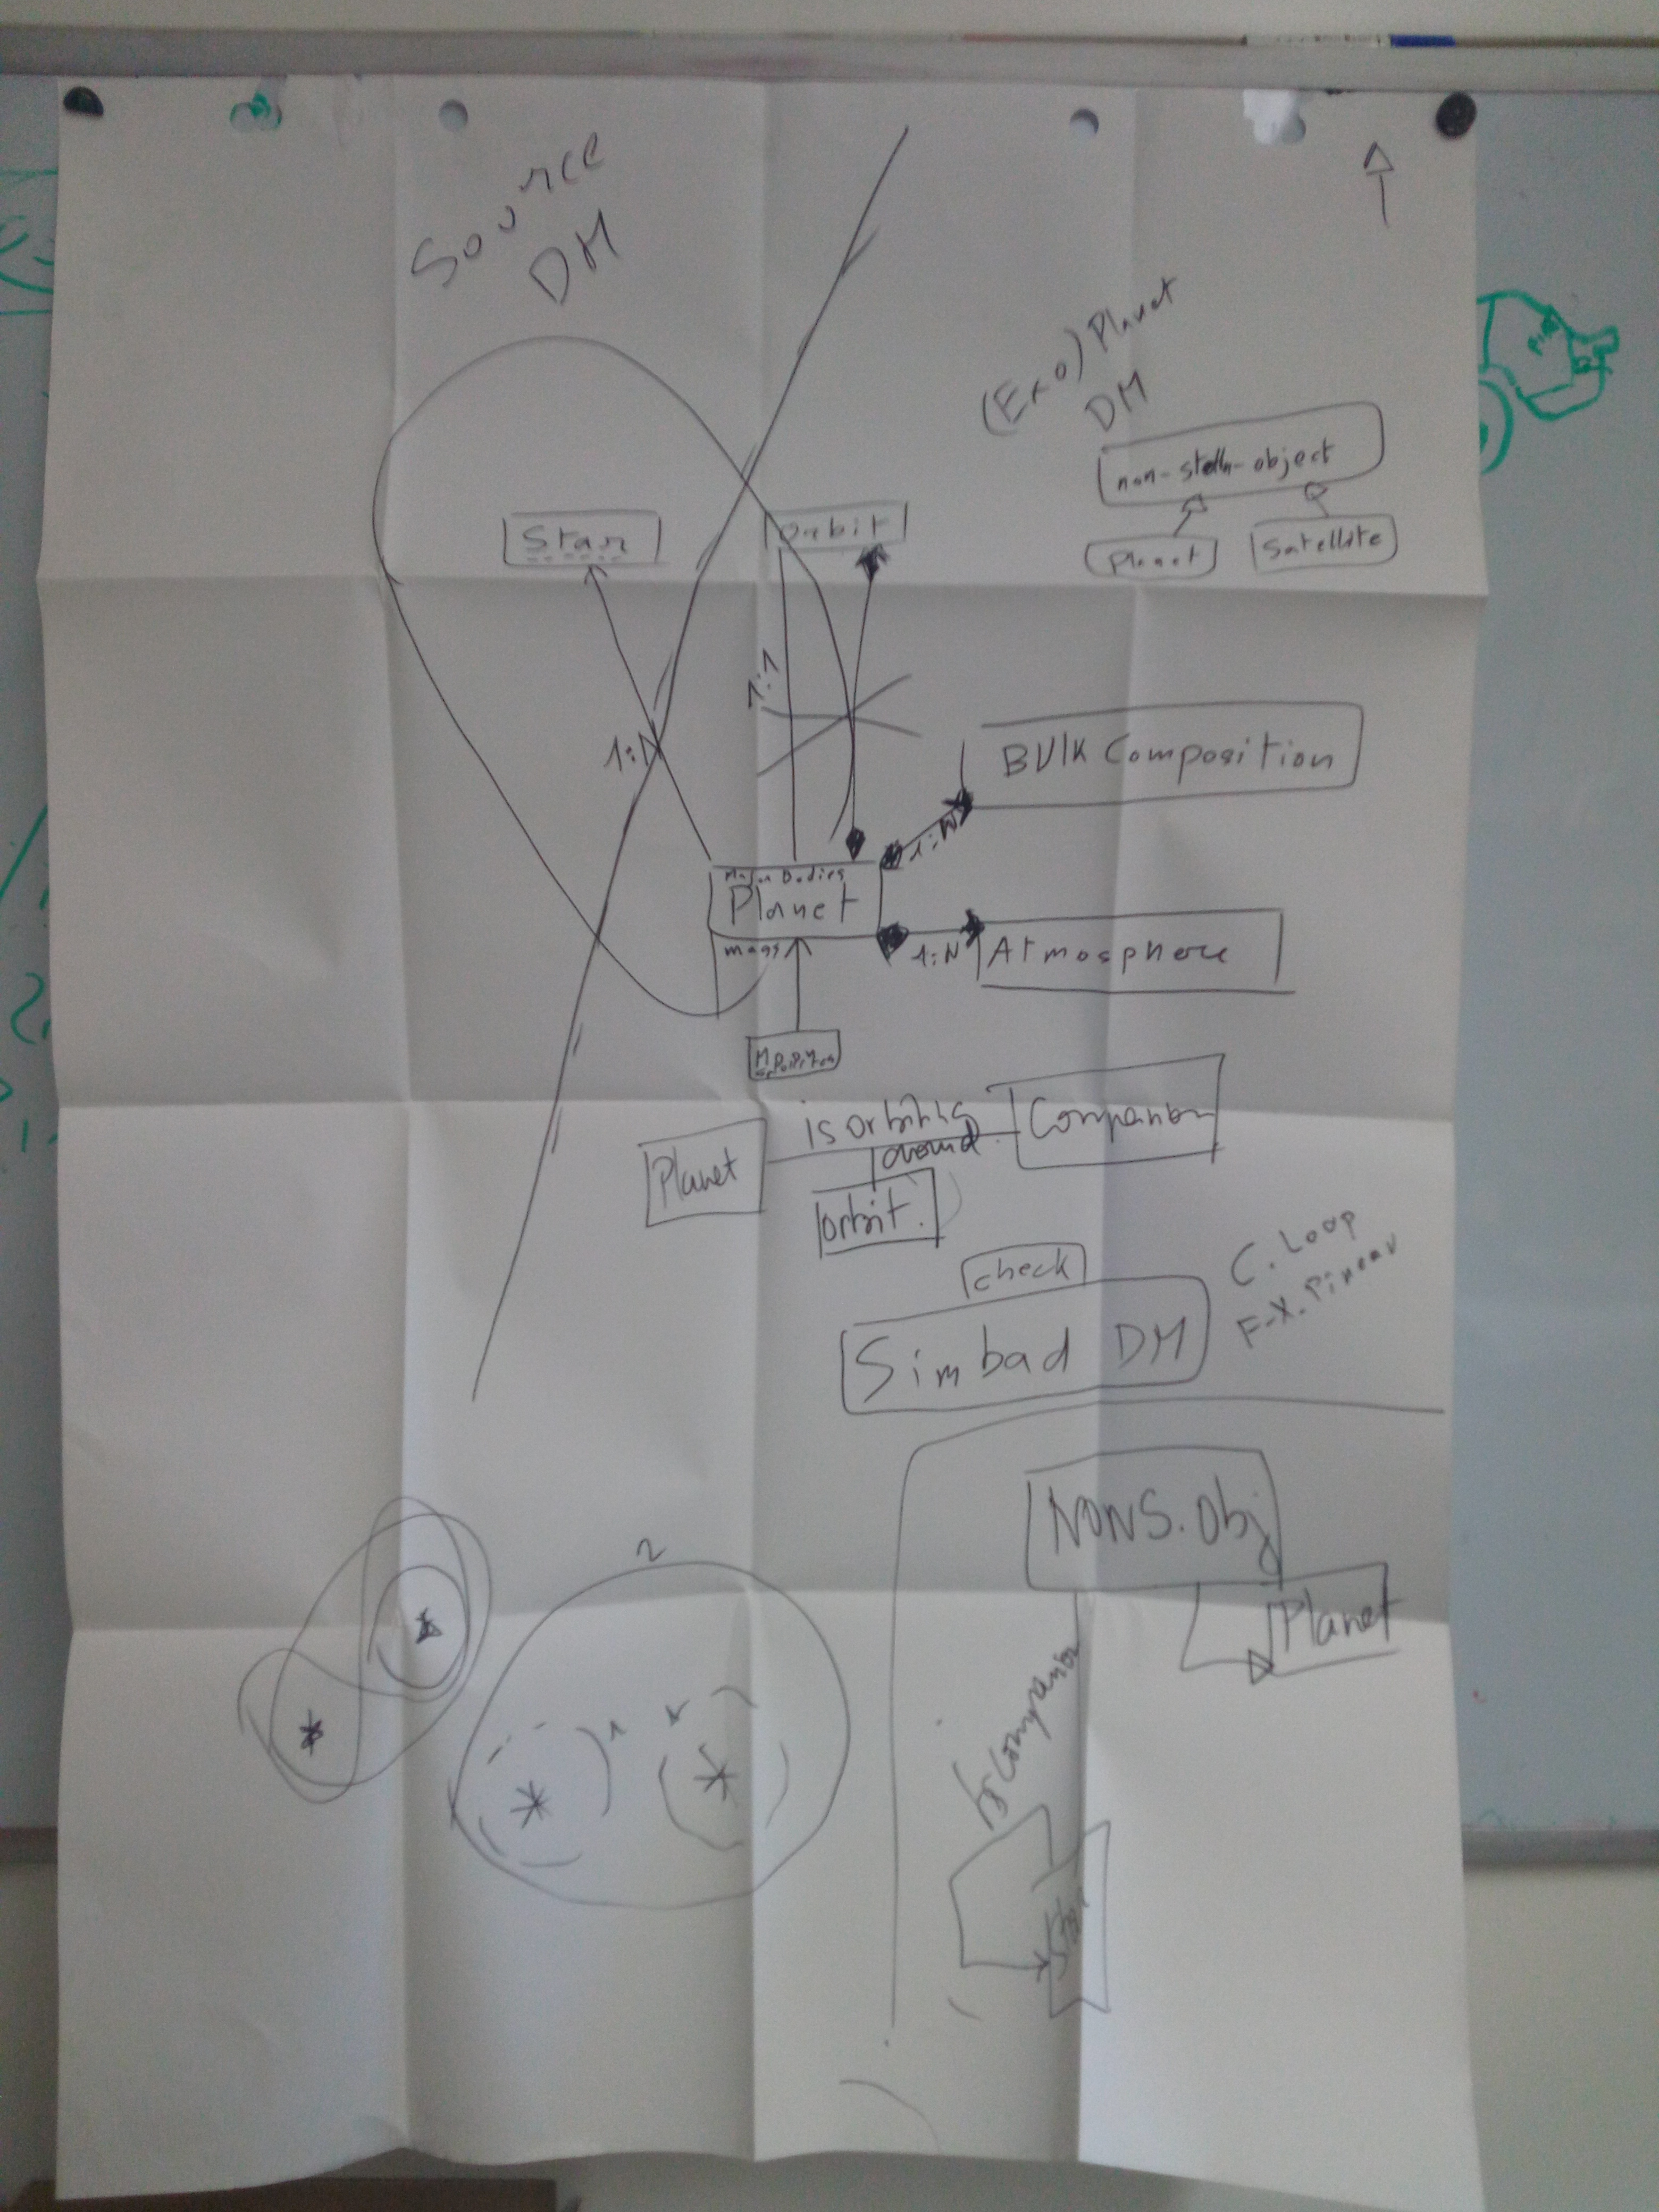 Source
DM
(Exo) Planet
DM
non-stellr-object
Planet
Satellite
Star
Orbit
1:1
1:N
BUlk Composition
1:N
Major Bodies
Planet
mass
1:N
Atmosphere
Planet
is orbiting
around
Companion
orbit.
check
Simbad DM
C. Loop
F-X. Pineau
NONS. Obj
Planet
2
1
Companion
Star